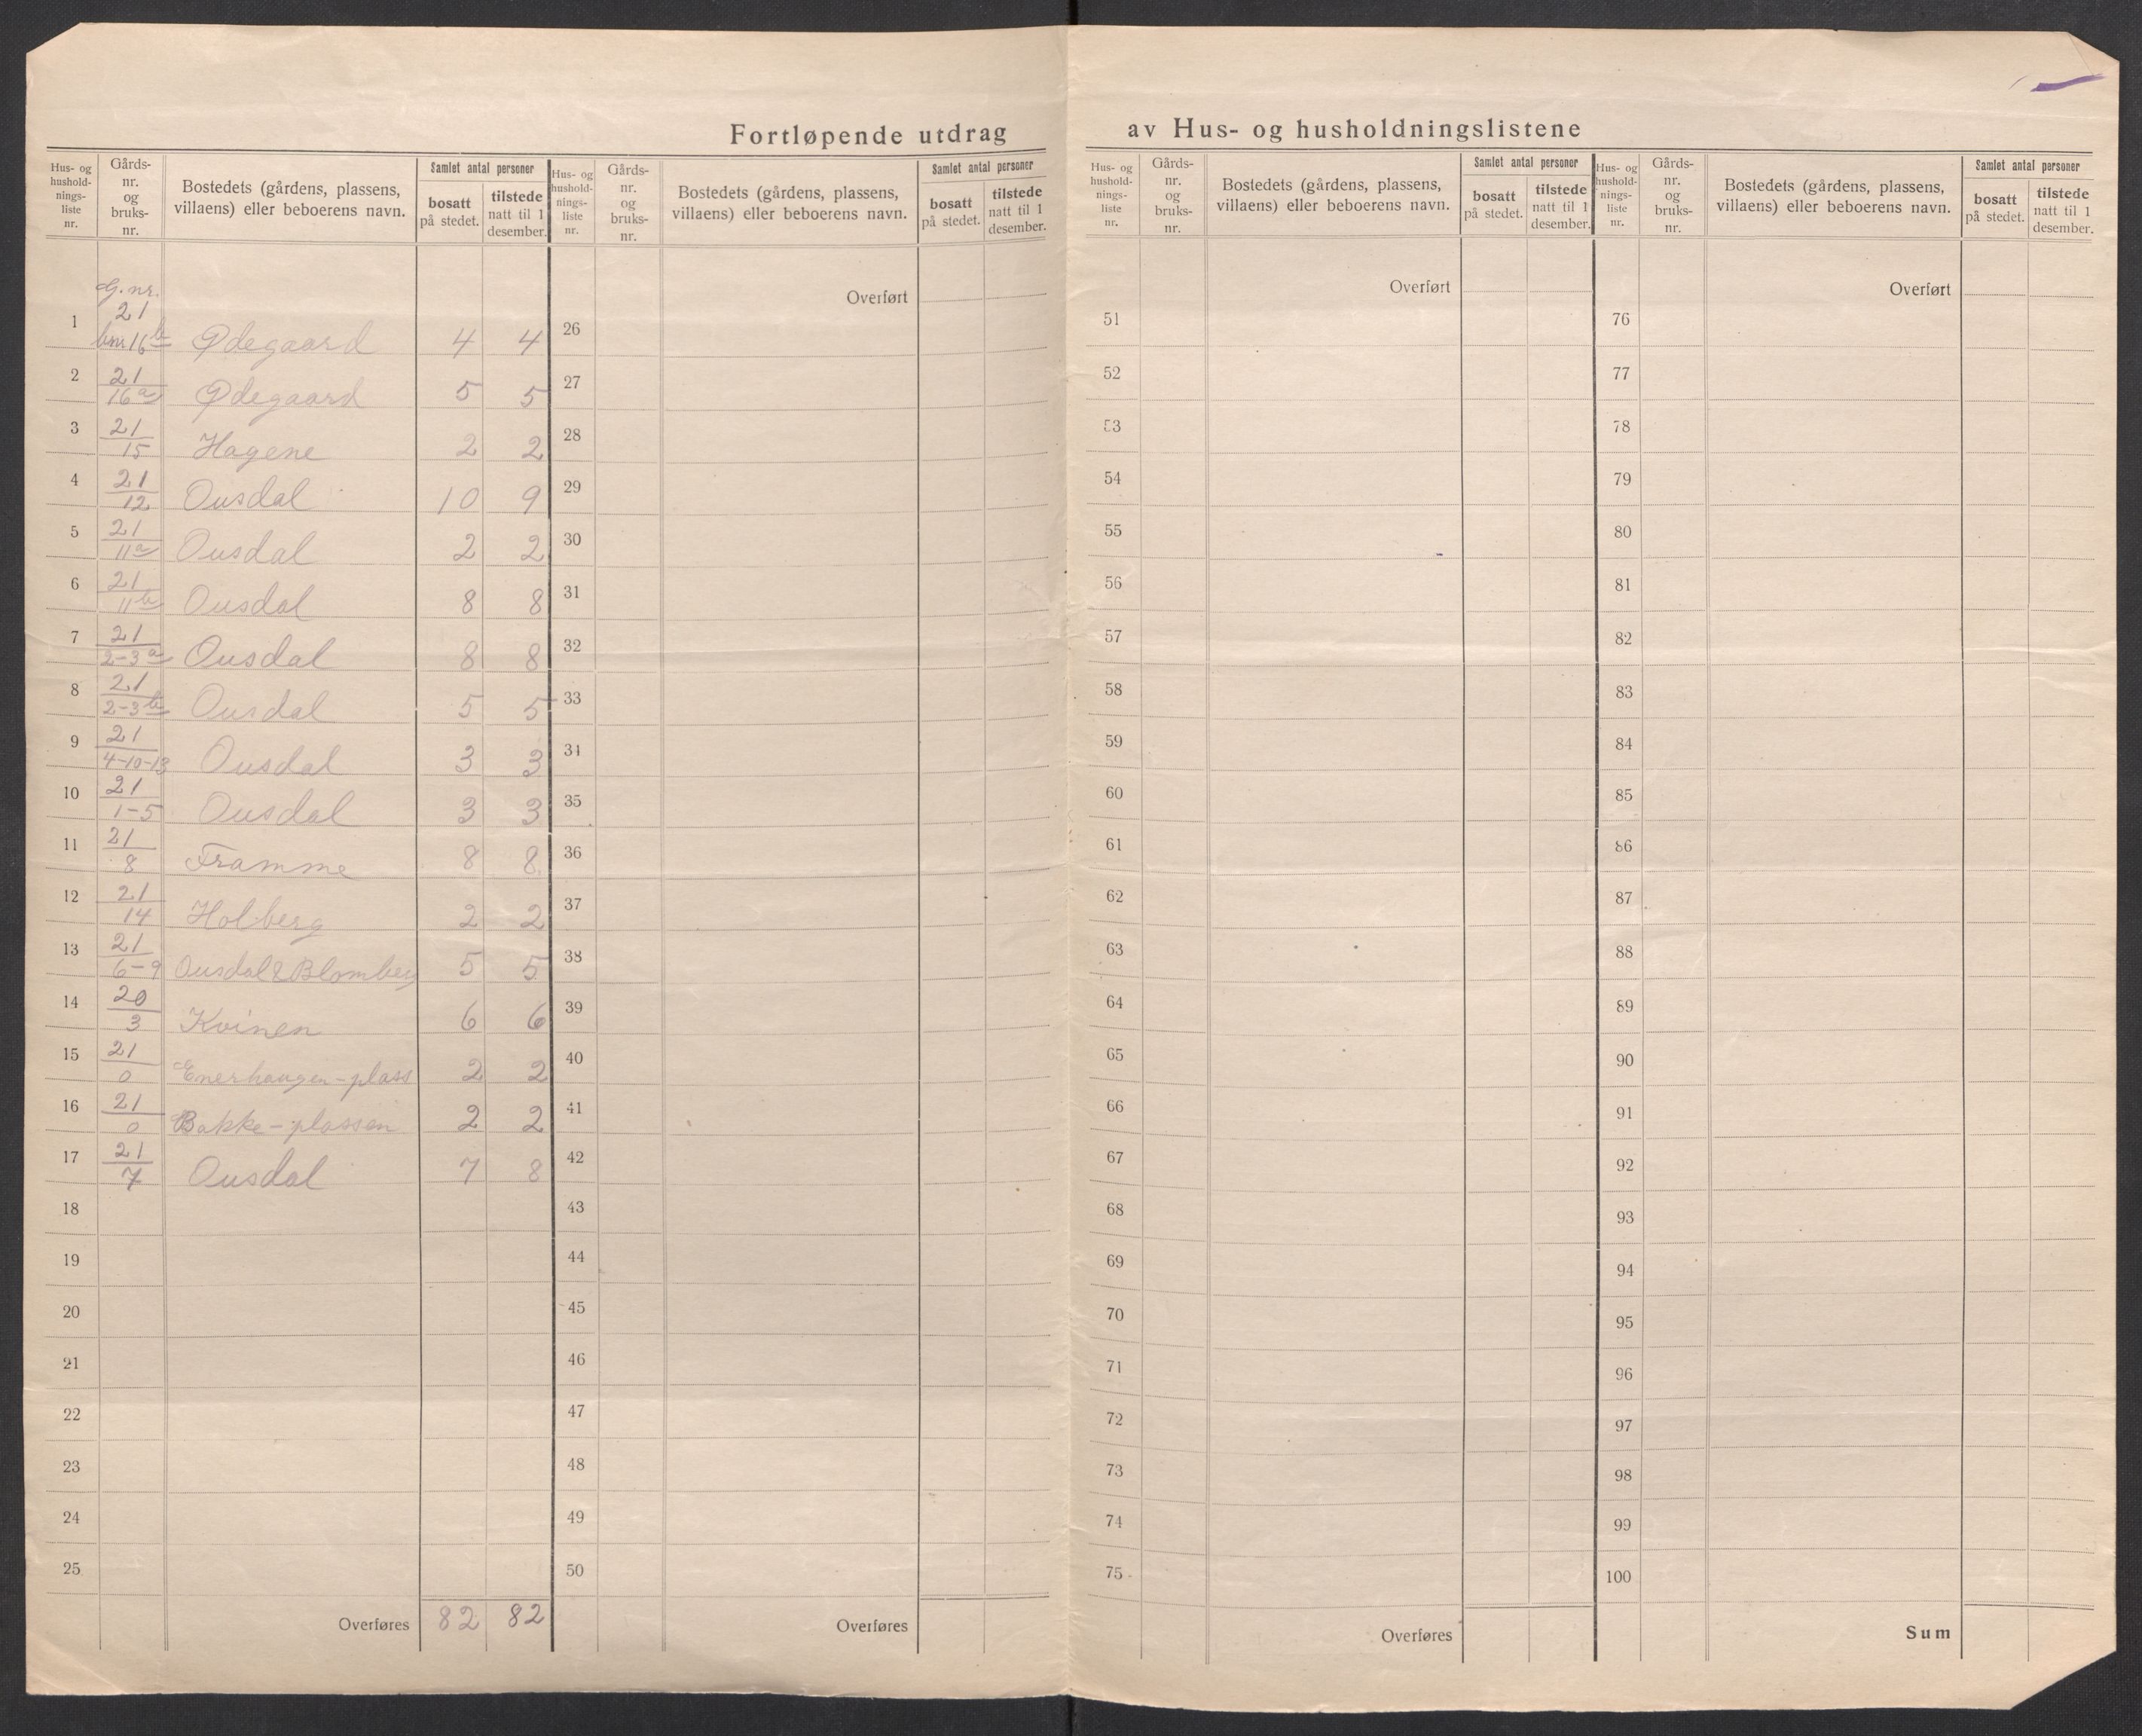 Fortløpende utdrag av Hus- og husholdningslistene
Hus- og hushold-nings-liste nr. | Gårds-nr. og bruks-nr. | Bostedets (gårdens, plassens, villaens) eller beboerens navn. | Samlet antal personer | bosatt på stedet. | tilstede natt til 1 desember.
G.nr.
1 21 bnr 16b Ødegaard 4 4
2 21/16a Ødegaard 5 5
3 21/15 Hagene 2 2
4 21/12 Ousdal 10 9
5 21/11a Ousdal 2 2
6 21/11b Ousdal 8 8
7 21/2-3a Ousdal 8 8
8 21/2-3b Ousdal 5 5
9 21/4-10-13 Ousdal 3 3
10 21/1-5 Ousdal 3 3
11 21/8 Framme 8 8
12 21/14 Holberg 2 2
13 21/6-9 Ousdal & Blomberg 5 5
14 20/3 Kvinen 6 6
15 21/0 Enerhaugen-plass 2 2
16 21/0 Bakke-plassen 2 2
17 21/7 Ousdal 7 8
18
19
20
21
22
23
24
25
Overføres 82 82
Hus- og hushold-nings-liste nr. | Gårds-nr. og bruks-nr. | Bostedets (gårdens, plassens, villaens) eller beboerens navn. | Samlet antal personer | bosatt på stedet. | tilstede natt til 1 desember.
Overført
26
27
28
29
30
31
32
33
34
35
36
37
38
39
40
41
42
43
44
45
46
47
48
49
50
Overføres
Hus- og hushold-nings-liste nr. | Gårds-nr. og bruks-nr. | Bostedets (gårdens, plassens, villaens) eller beboerens navn. | Samlet antal personer | bosatt på stedet. | tilstede natt til 1 desember.
Overført
51
52
53
54
55
56
57
58
59
60
61
62
63
64
65
66
67
68
69
70
71
72
73
74
75
Overføres
Hus- og hushold-nings-liste nr. | Gårds-nr. og bruks-nr. | Bostedets (gårdens, plassens, villaens) eller beboerens navn. | Samlet antal personer | bosatt på stedet. | tilstede natt til 1 desember.
Overført
76
77
78
79
80
81
82
83
84
85
86
87
88
89
90
91
92
93
94
95
96
97
98
99
100
Sum